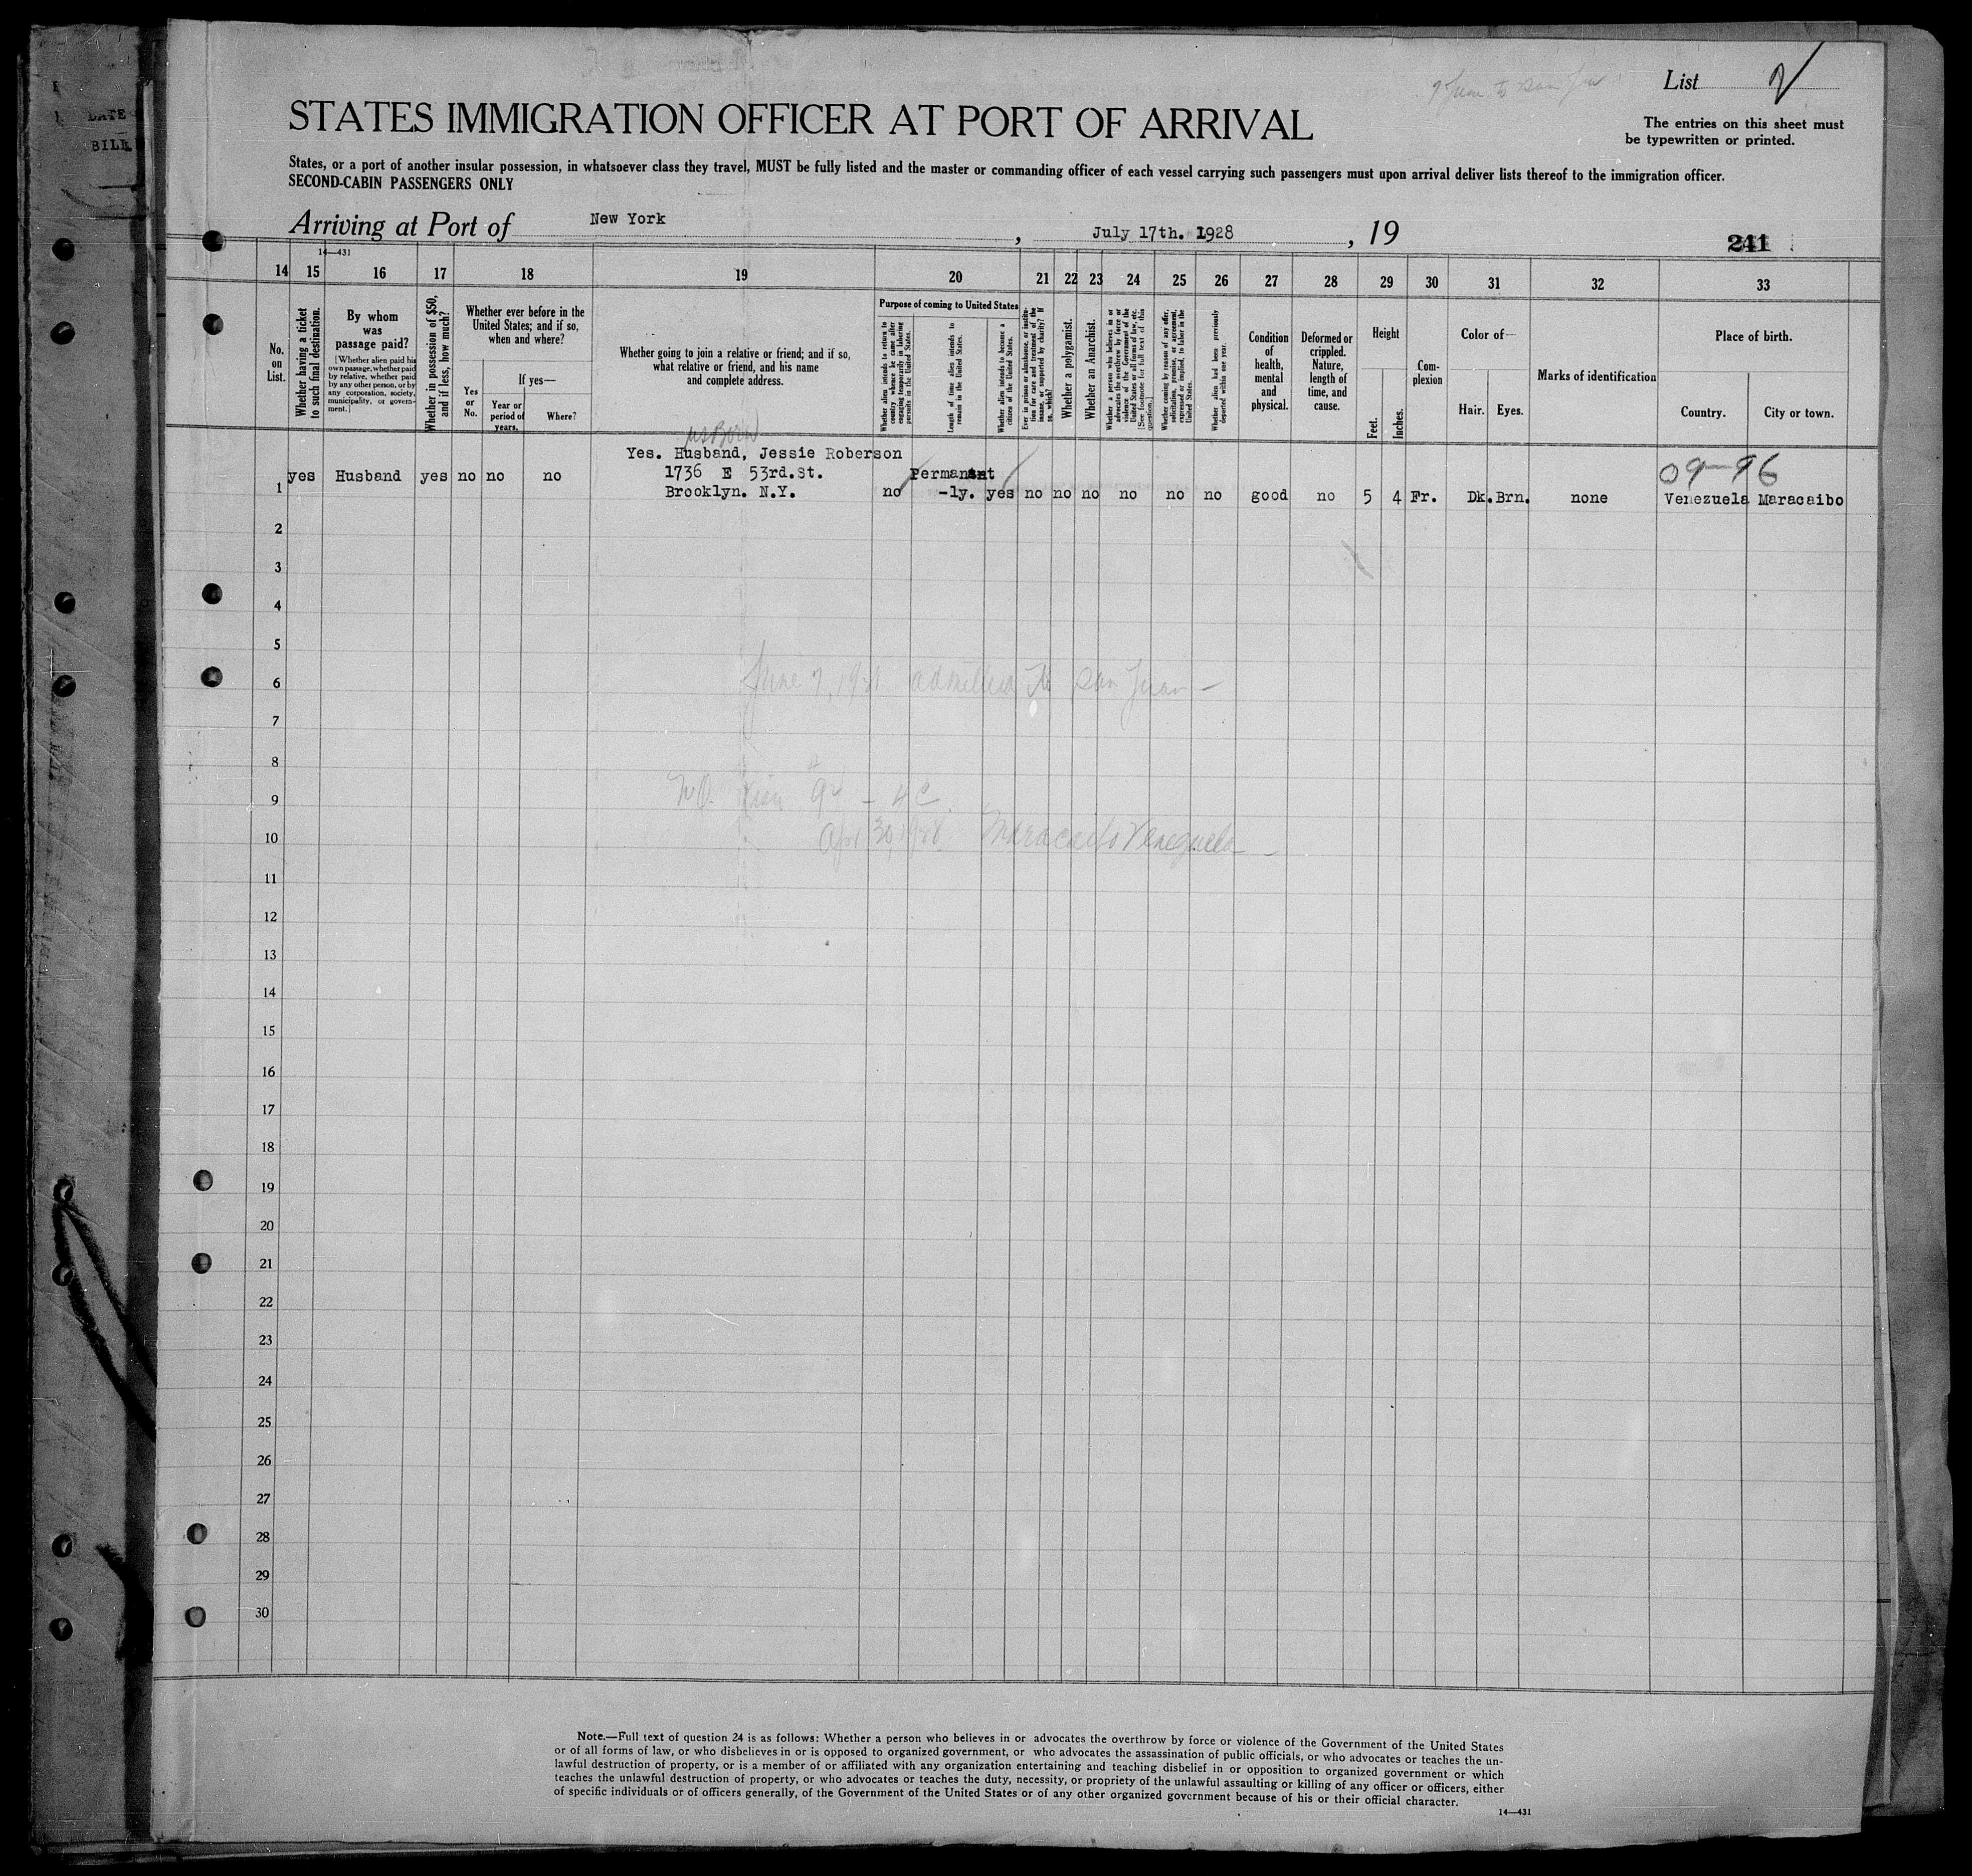 DATE
BILL
List 2
STATES IMMIGRATION OFFICER AT PORT OF ARRIVAL
The entries on this sheet must
be typewritten or printed.
States, or a port of another insular possession, in whatsoever class they travel, MUST be fully listed and the master or commanding officer of each vessel carrying such passengers must upon arrival deliver lists thereof to the immigration officer.
SECOND-CABIN PASSENGERS ONLY
Arriving at Port of New York, July 17th. 1928, 19
241
14—431
14 15 16 17 18 19 20 21 22 23 24 25 26 27 28 29 30 31 32 33
No. on List.
Whether having a ticket to such final destination.
By whom was passage paid?
[Whether alien paid his own passage, whether paid by relative, whether paid by any other person, or by any corporation, society, municipality, or government.]
Whether in possession of $50, and if less, how much?
Whether ever before in the United States; and if so, when and where?
Yes or No.
If yes—
Year or period of years.
Where?
Whether going to join a relative or friend; and if so, what relative or friend, and his name and complete address.
Purpose of coming to United States
Whether alien intends to return to country whence he came after engaging temporarily in laboring pursuits in the United States.
Length of time alien intends to remain in the United States.
Whether alien intends to become a citizen of the United States.
Ever in prison or almshouse, or institution for care and treatment of the insane, or supported by charity? If so, which?
Whether a polygamist.
Whether an Anarchist.
Whether a person who believes in or advocates the overthrow by force or violence of the Government of the United States or all forms of law, etc. [See footnote for full text of this question.]
Whether coming by reason of any offer, solicitation, promise, or agreement, expressed or implied, to labor in the United States.
Whether alien had been previously deported within one year.
Condition of health, mental and physical.
Deformed or crippled. Nature, length of time, and cause.
Height
Feet.
Inches.
Complexion
Color of—
Hair.
Eyes.
Marks of identification
Place of birth.
Country.
City or town.
US Born
Yes. Husband, Jessie Roberson
1736 E 53rd.St.
Brooklyn. N.Y.
09-96
1 yes Husband yes no no no no Permanent -ly. yes no no no no no no good no 5 4 Fr. Dk. Brn. none Venezuela Maracaibo
2
3
4
5
6
June 7, admitted to San Juan —
7
8
9
10
Maracaibo Venezuela —
11
12
13
14
15
16
17
18
19
20
21
22
23
24
25
26
27
28
29
30
Note.—Full text of question 24 is as follows: Whether a person who believes in or advocates the overthrow by force or violence of the Government of the United States
or of all forms of law, or who disbelieves in or is opposed to organized government, or who advocates the assassination of public officials, or who advocates or teaches the un-
lawful destruction of property, or is a member of or affiliated with any organization entertaining and teaching disbelief in or opposition to organized government or which
teaches the unlawful destruction of property, or who advocates or teaches the duty, necessity, or propriety of the unlawful assaulting or killing of any officer or officers, either
of specific individuals or of officers generally, of the Government of the United States or of any other organized government because of his or their official character.
14—431